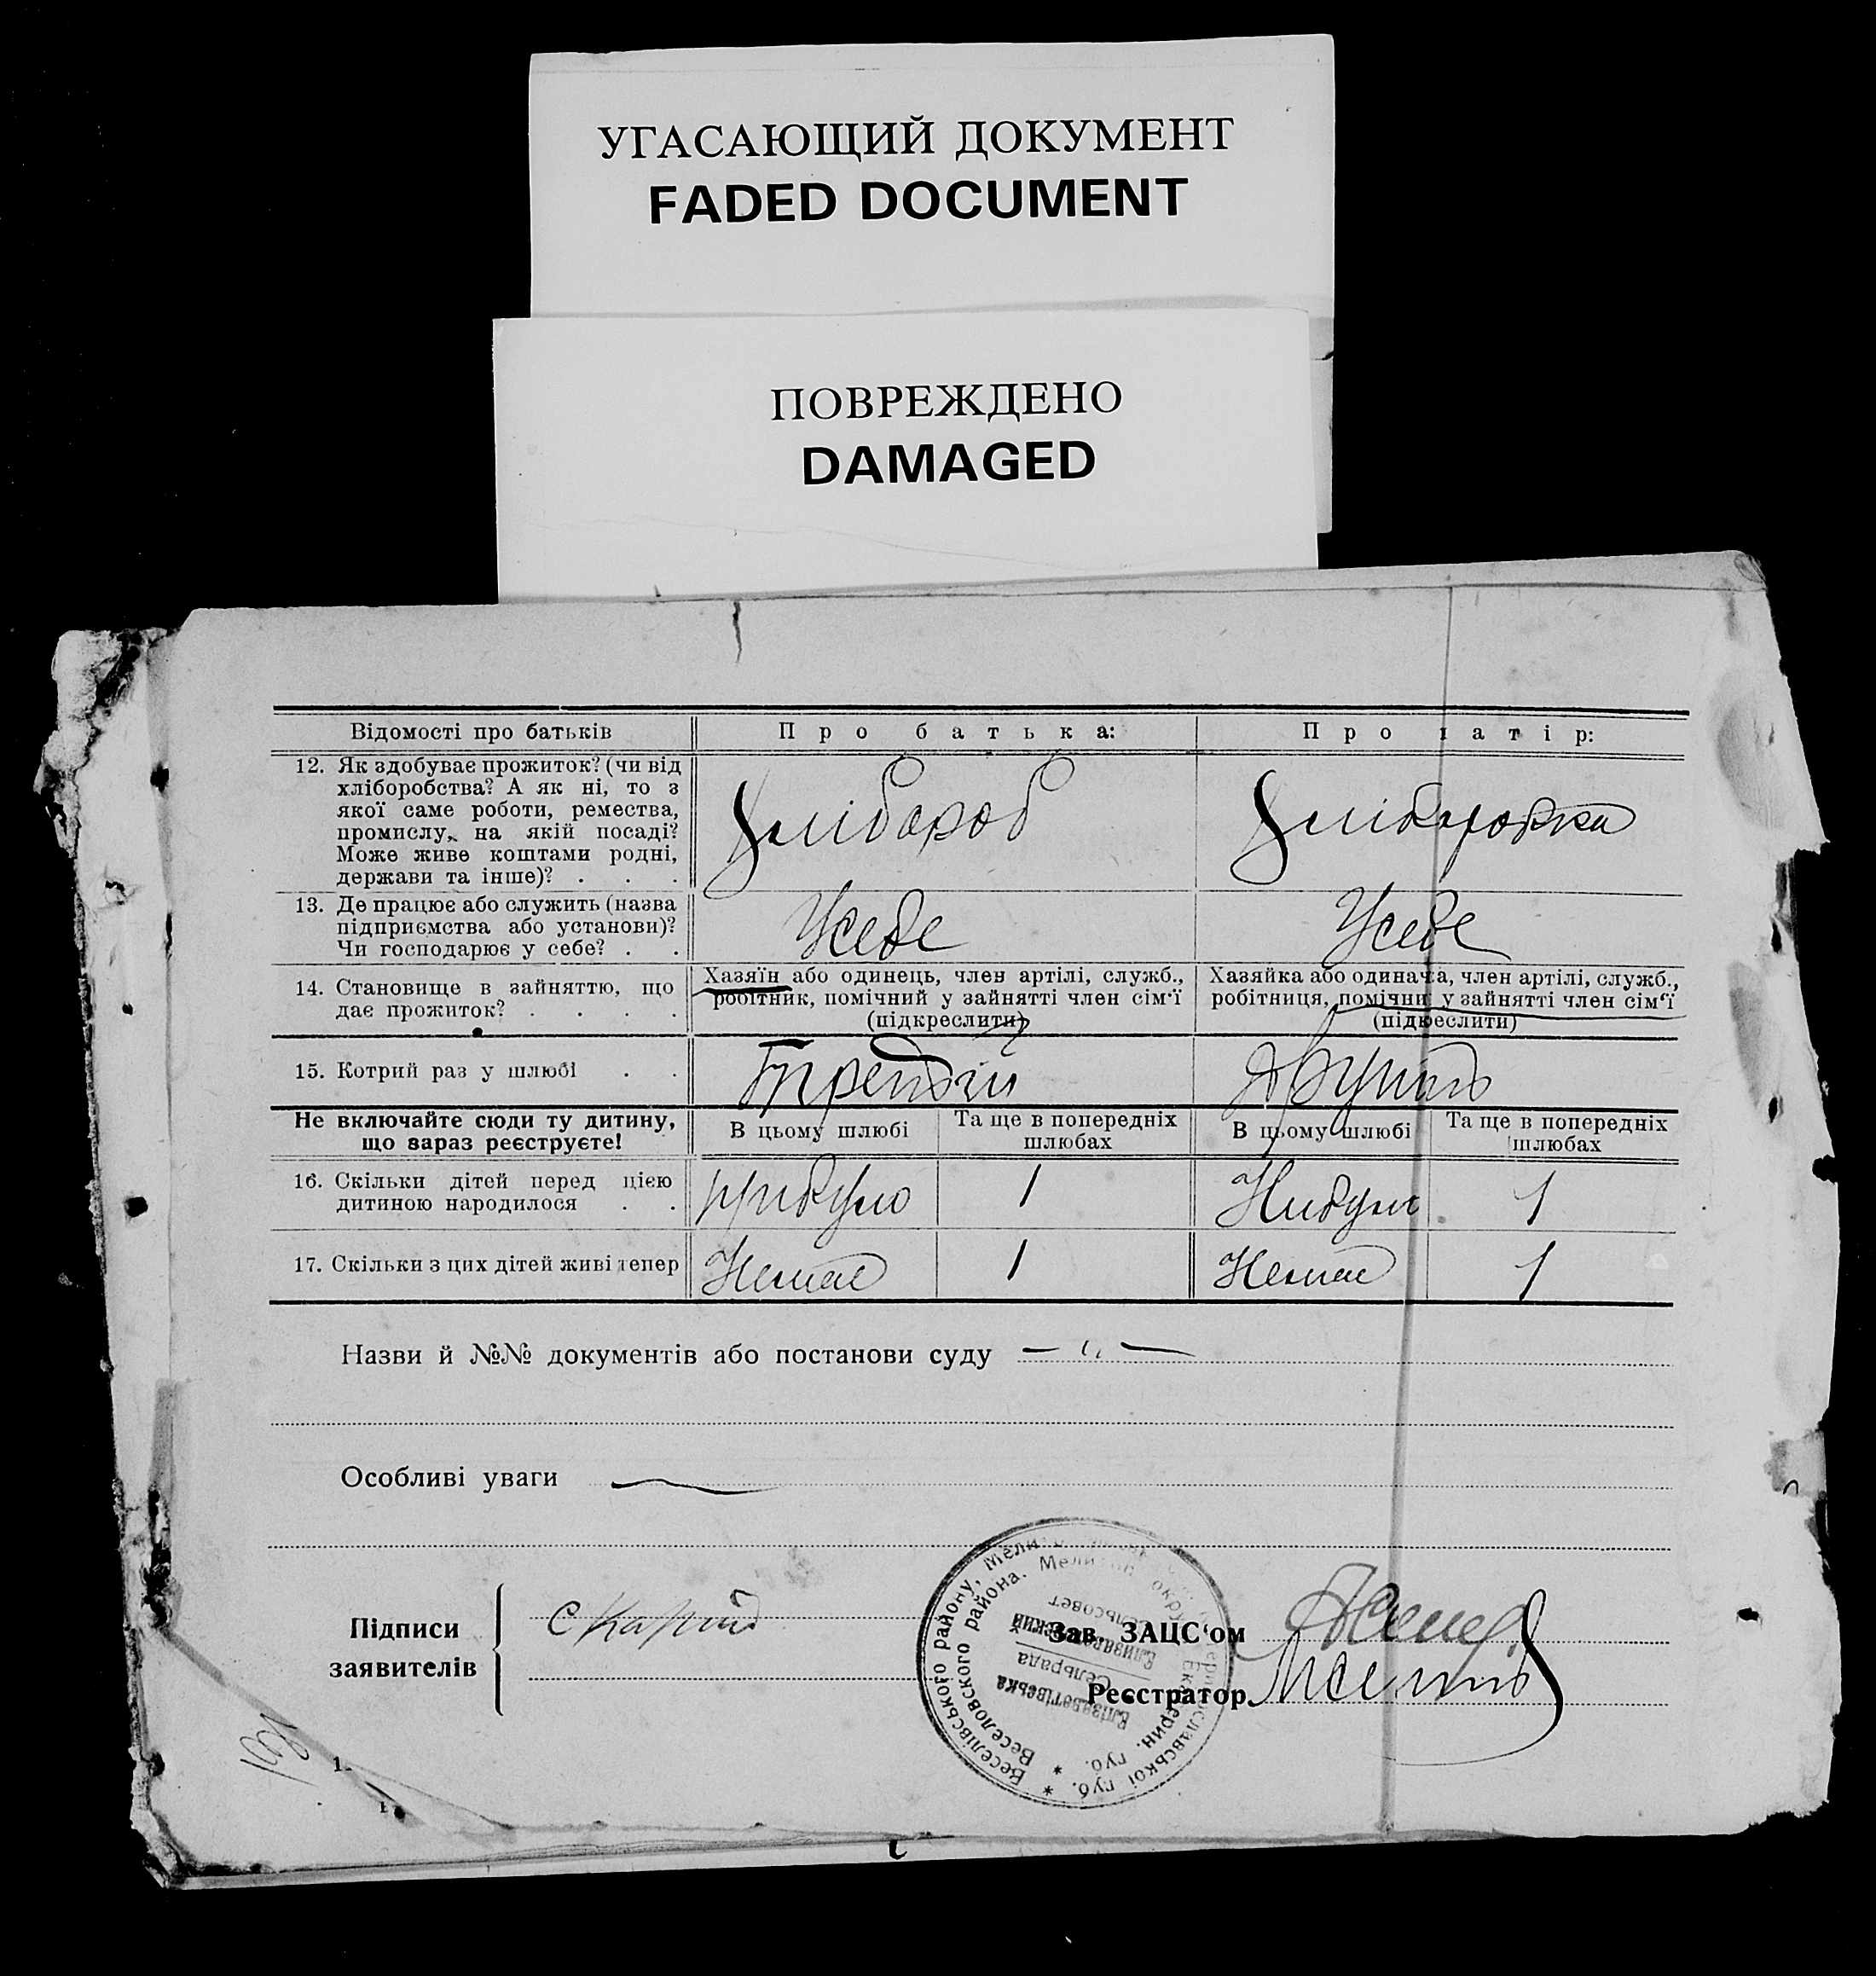 УГАСАЮЩИЙ ДОКУМЕНТ
FADED DOCUMENT
ПОВРЕЖДЕНО
DAMAGED
Відомості про батьків
Про батька:
Про матір:
12. Як здобуває прожиток? (чи від
хліборобства? А як ні, то з
якої саме роботи, ремества,
промислу, на якій посаді?
Може живе коштами родні,
держави та інше)? . . .
Хлібороб
Хліборобка
13. Де працює або служить (назва
підприємства або установи)?
Чи господарює у себе? . .
Усебе
Усебе
14. Становище в зайняттю, що
дає прожиток? . . . .
Хазяїн або одинець, член артілі, служб.,
робітник, помічний у зайнятті член сім'ї
(підкреслити)
Хазяйка або одиначка, член артілі, служб.,
робітниця, помічни у зайнятті член сім'ї
(підкреслити)
15. Котрий раз у шлюбі . .
Третій
Другий
Не включайте сюди ту дитину,
що зараз реєструєте!
В цьому шлюбі
Та ще в попередніх
шлюбах
В цьому шлюбі
Та ще в попередніх
шлюбах
16. Скільки дітей перед цією
дитиною народилося . .
Нибуло
1
Нибуло
1
17. Скільки з цих дітей живі тепер
Немае
1
Немае
1
Назви й №№ документів або постанови суду — " —
Особливі уваги —
Підписи
заявителів
Зав. ЗАЦС'ом
Реєстратор
Веселівського району, Мелітопольськ
Веселовского района. Мелитоп. окр. Екатерин. губ.
Єлізаветівська
Сельрада
Елизаветовский
Сельсовет